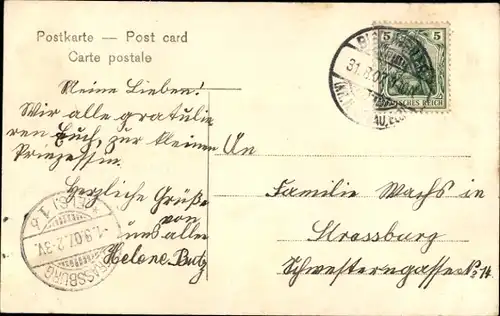 Postkarte — Post card
Carte postale
Meine Lieben!
Wir alle gratulie
ren Euch, zur kleinen
Prinzessin.
Herzliche Grüße
von
uns allen
Helene Butz
An
Familie Wachs in
Strassburg
Schwesterngasse No 14
5 5
DEUTSCHES REICH
31.8.07
STRASSBURG
1.9.07. 2-3V.
(ELS.) 1 b